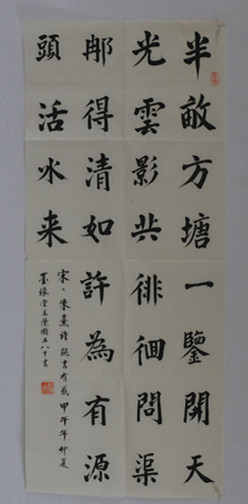 半畝方塘一鑒開天
光雲影共徘徊問渠
那得清如許為有源
頭活水来
宋、朱熹詩觀書有感甲午年仲夏